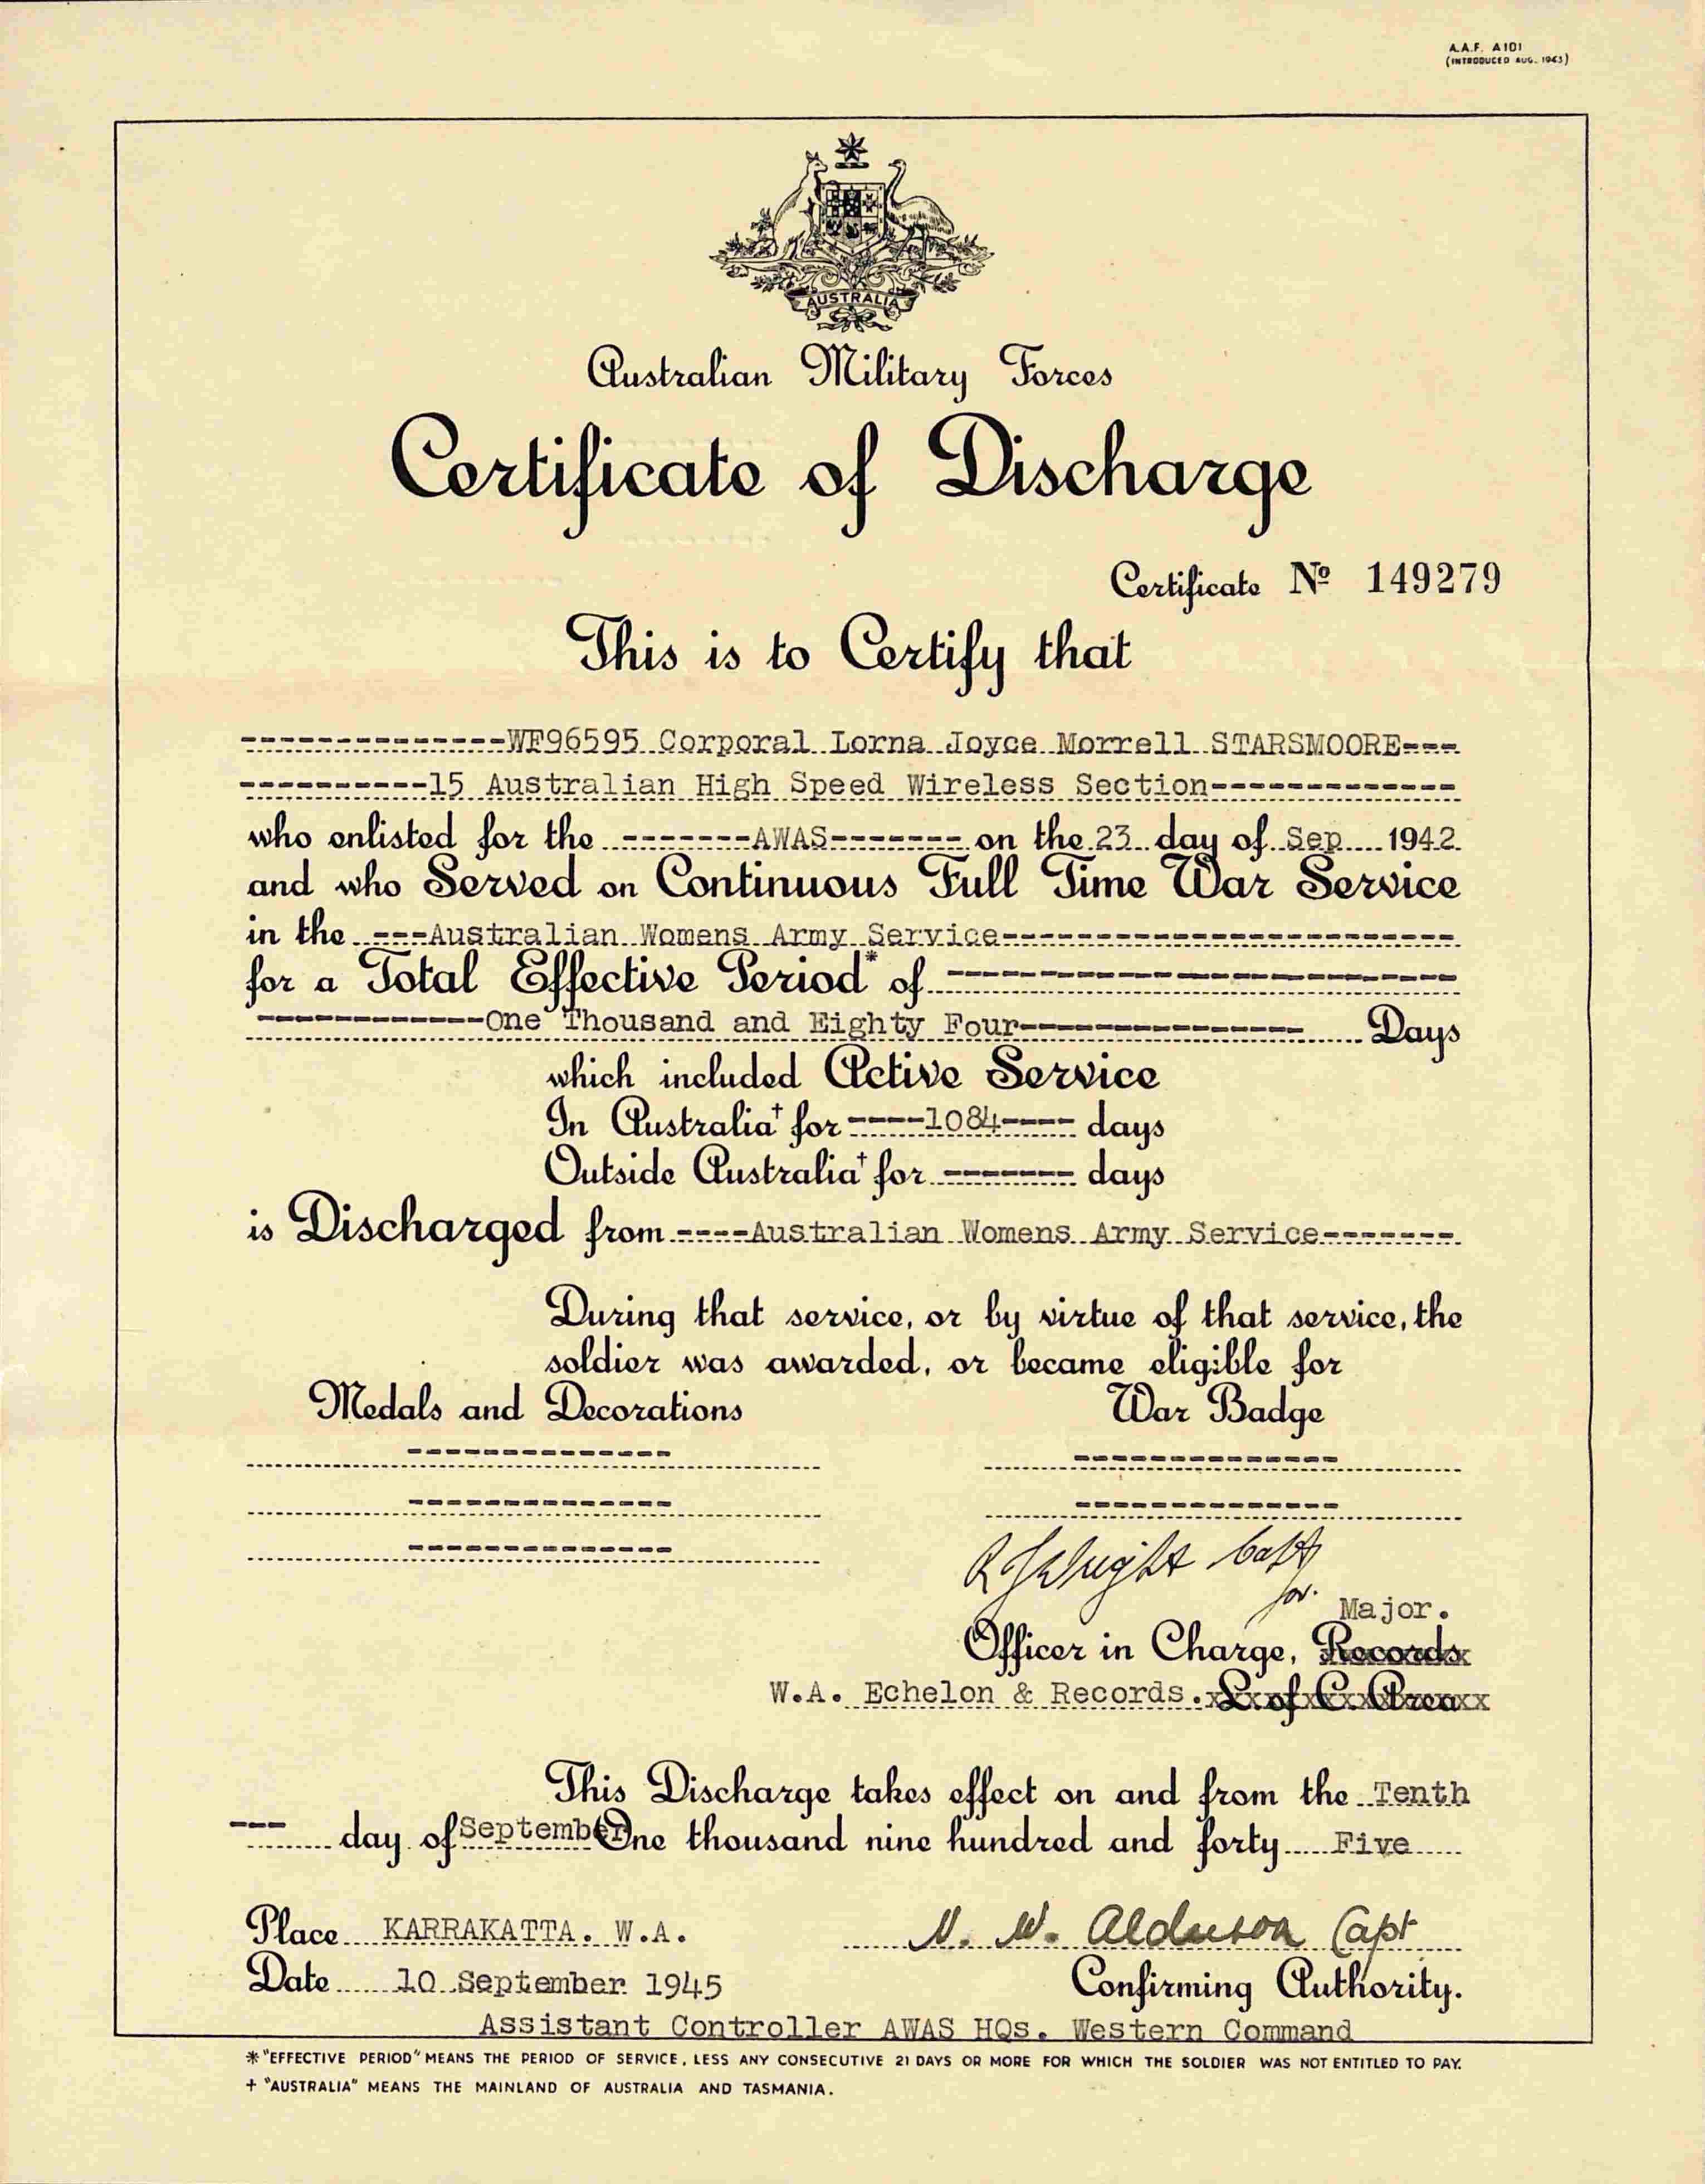 A.A.F. A101
(INTRODUCED AUG. 1943)
AUSTRALIA
Australian Military Forces
Certificate of Discharge
Certificate No 149279
This is to Certify that
---------------WF96595 Corporal Lorna Joyce Morrell STARSMOORE---
-----------15 Australian High Speed Wireless Section--------------
who enlisted for the -------AWAS------- on the 23 day of Sep 1942
and who Served on Continuous Full Time War Service
in the ---Australian Womens Army Service-------------------------
for a Total Effective Period* of ------------------------------
-------------One Thousand and Eighty Four---------------- Days
which included Active Service
In Australia† for ----1084---- days
Outside Australia† for ------- days
is Discharged from ----Australian Womens Army Service-------
During that service, or by virtue of that service, the
soldier was awarded, or became eligible for
Medals and Decorations War Badge
-------------- --------------
-------------- --------------
--------------
R J Wright Capt
for. Major.
Officer in Charge, Records
W.A. Echelon & Records. L. of C. Area
This Discharge takes effect on and from the Tenth
--- day of September One thousand nine hundred and forty Five
Place KARRAKATTA. W.A. N. W. Alderson Capt
Date 10 September 1945 Confirming Authority.
Assistant Controller AWAS HQs. Western Command
* "EFFECTIVE PERIOD" MEANS THE PERIOD OF SERVICE, LESS ANY CONSECUTIVE 21 DAYS OR MORE FOR WHICH THE SOLDIER WAS NOT ENTITLED TO PAY.
+ "AUSTRALIA" MEANS THE MAINLAND OF AUSTRALIA AND TASMANIA.